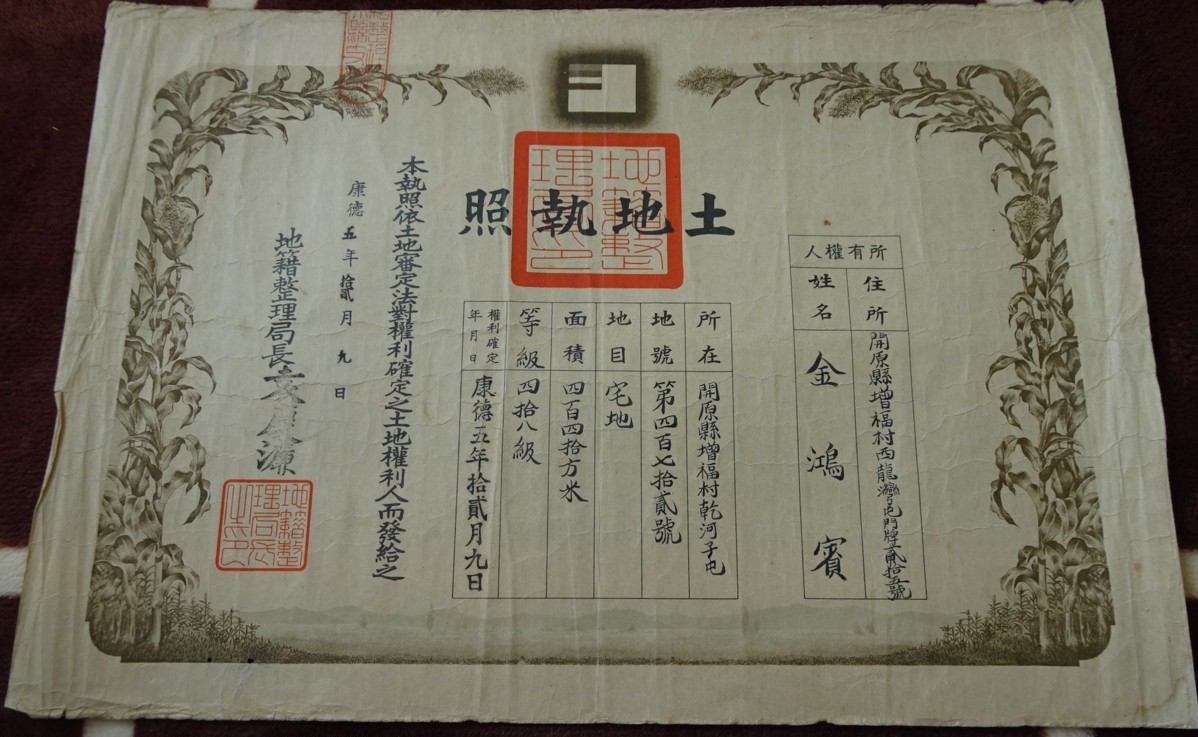 土地執照
所有權人
住所
開原縣增福村西龍灣屯門牌貳拾五號
姓名
金鴻賓
所在
開原縣增福村乾河子屯
地號
第四百七拾貳號
地目
宅地
面積
四百四拾方米
等級
四拾八級
權利確定年月日
康德五年拾貳月九日
本執照依土地審定法對權利確定之土地權利人而發給之
康德五年拾貳月九日
地籍整理局長
地籍整理局之印
地籍整理局長之印